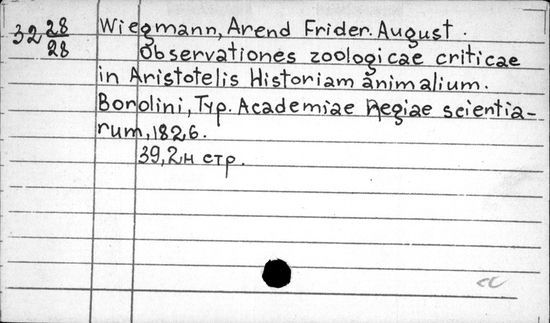 32 28/28 Wiegmann, Arend Frider. August.
Observationes zoologicae criticae
in Aristotelis Historiam animalium.
Borolini, Typ. Academiae Regiae scientia-
rum, 1826.
39, 2н стр.